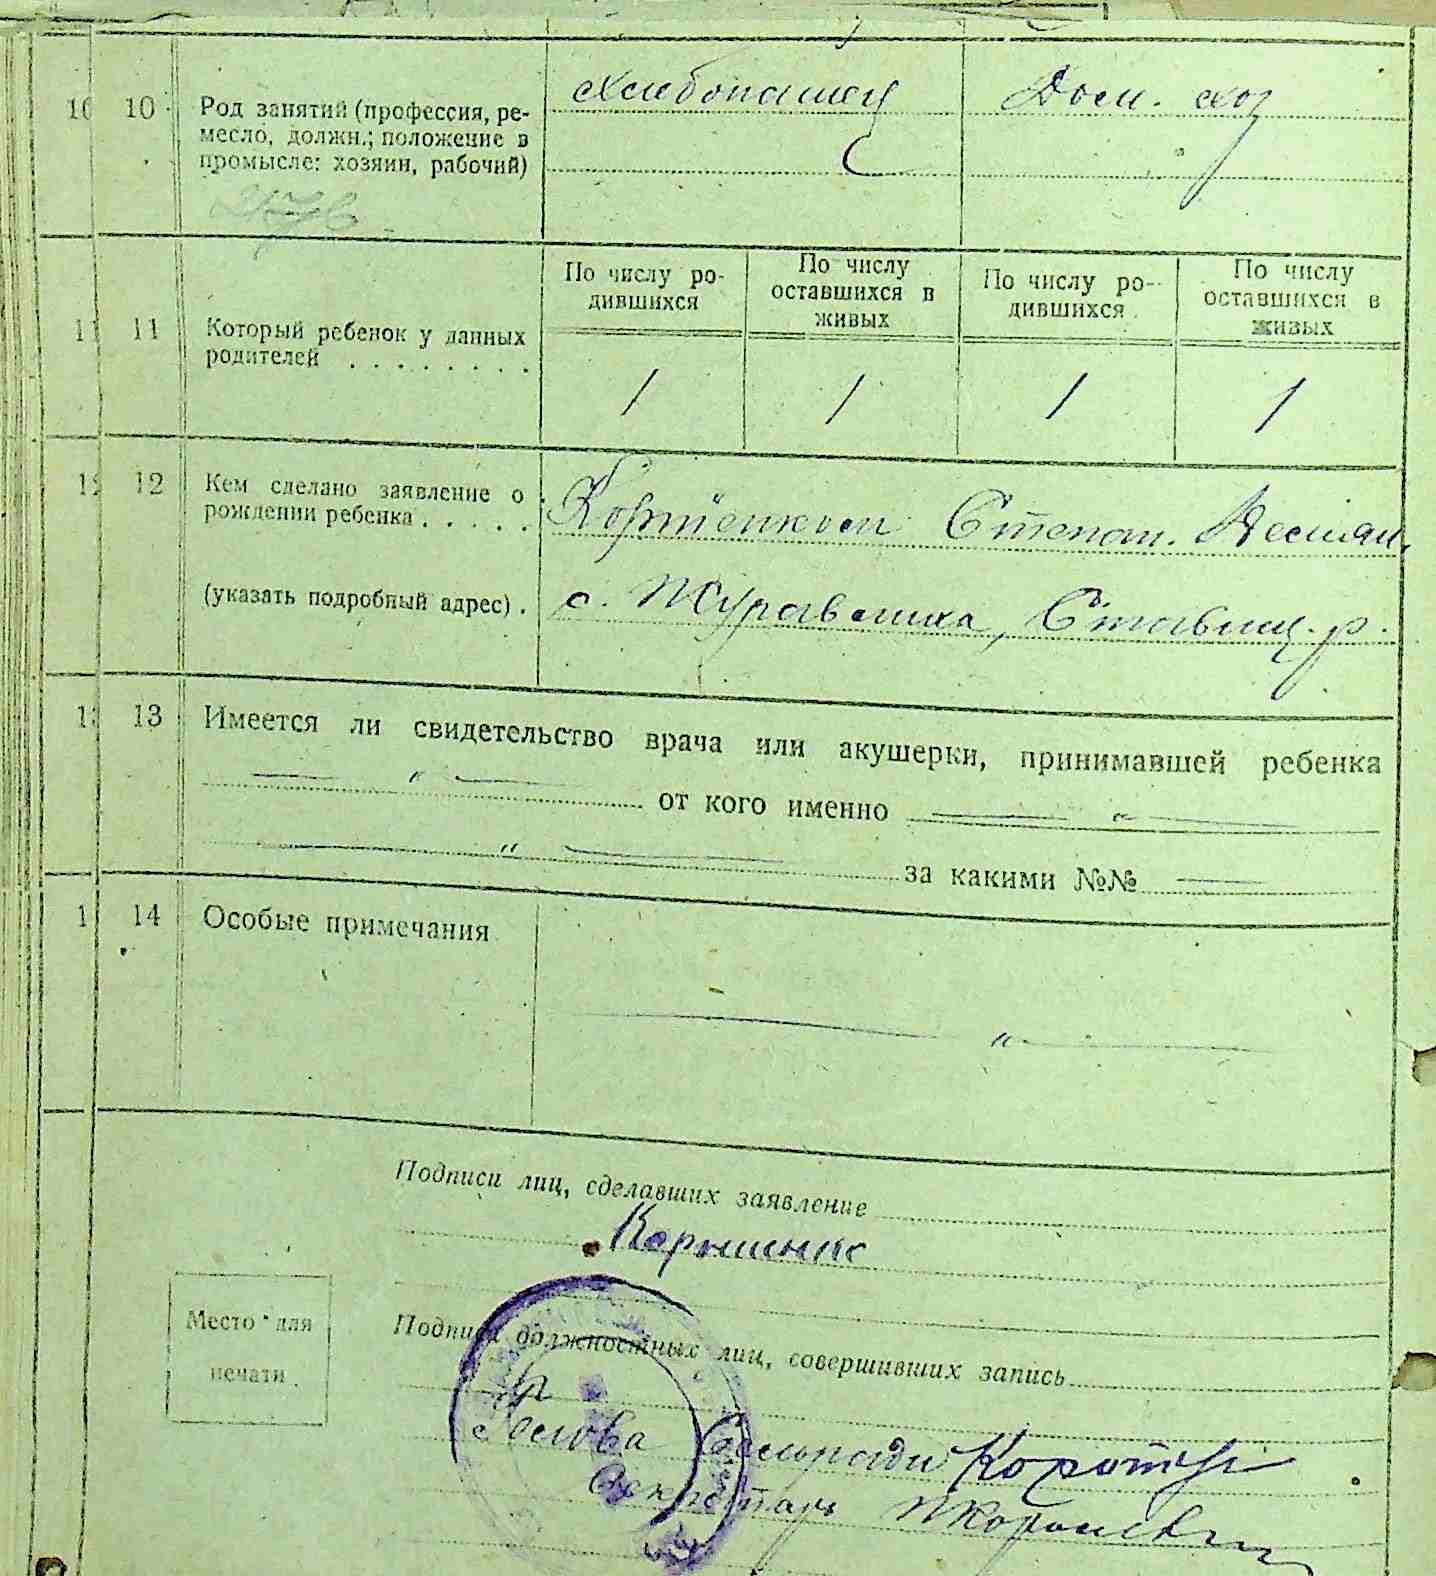 10 10 Род занятий (профессия, ре-
месло, должн.; положение в
промысле: хозяин, рабочий)
Хлебопашец Дом. хоз
По числу ро-
дившихся
По числу
оставшихся в
живых
По числу ро-
дившихся
По числу
оставшихся в
живых
11 11 Который ребенок у данных
родителей . . . . . . . .
1 1 1 1
12 12 Кем сделано заявление о
рождении ребенка . . . . .
Степан.
(указать подробный адрес) .
с. Журавлиха, Ставищ. р.
13 13 Имеется ли свидетельство врача или акушерки, принимавшей ребенка
— " — от кого именно — " —
— " — за какими №№ —
1 14 Особые примечания
— " —
Подписи лиц, сделавших заявление
Место для
печати
Подписи должностных лиц, совершивших запись
Голова Сельради
Секретарь